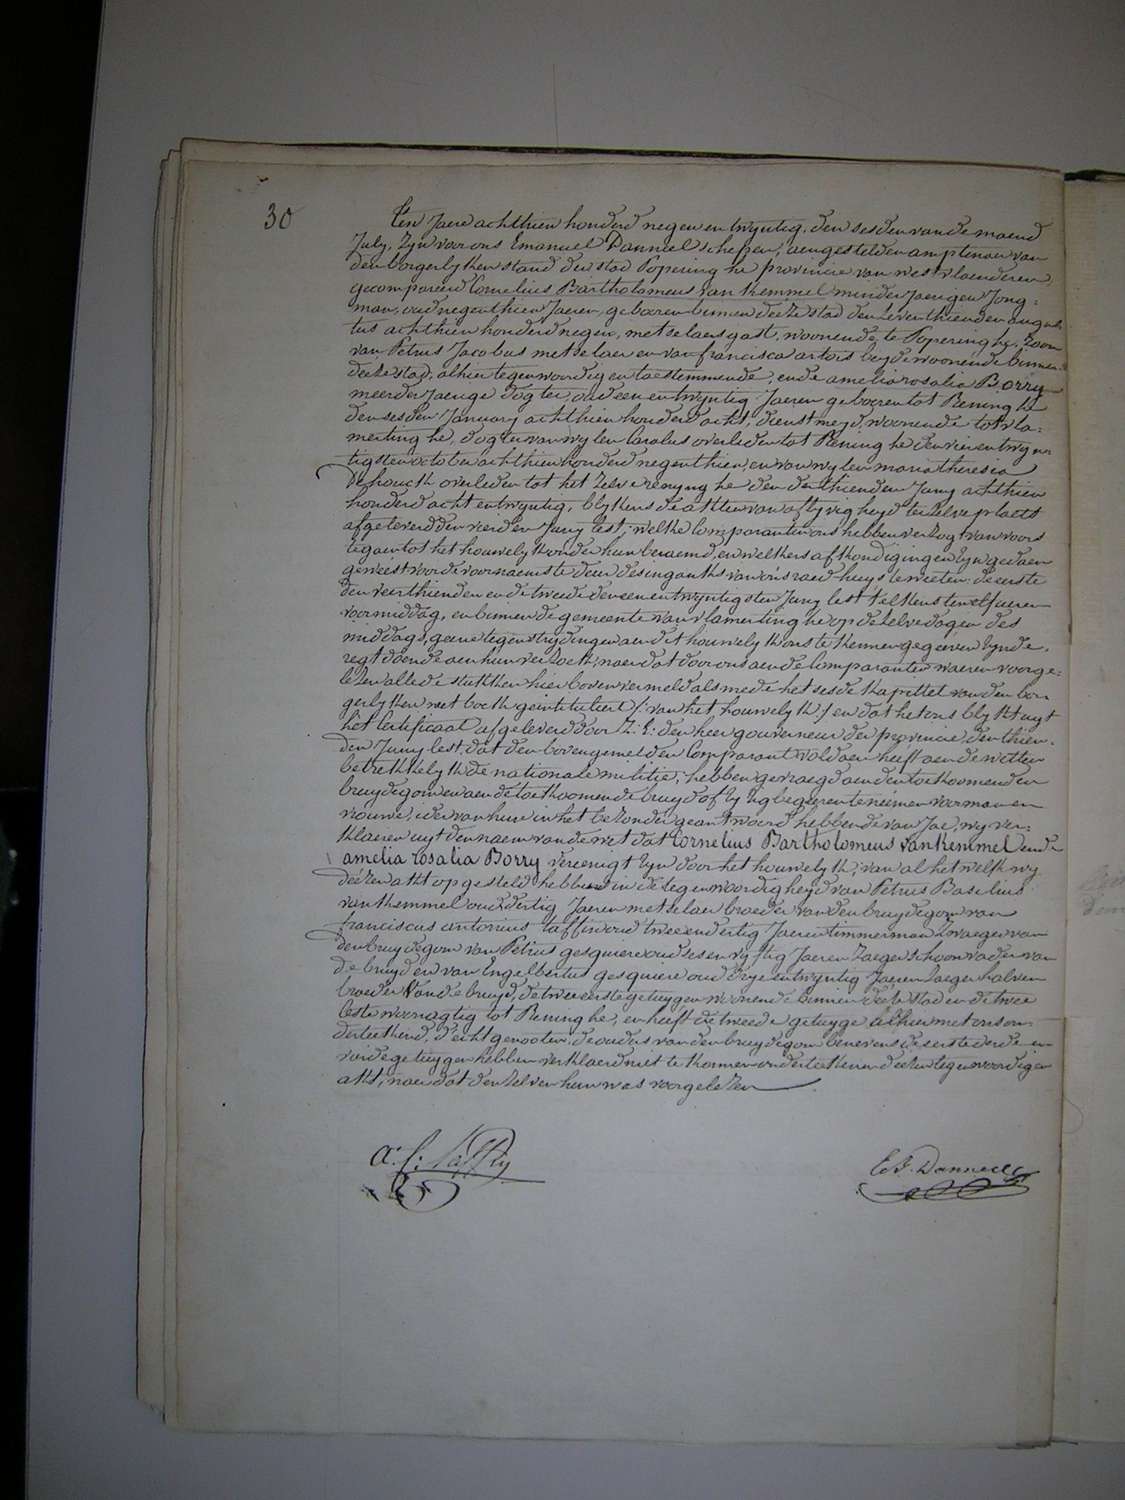 30
Een Jaere achthien honderd negen en twyntig, den sesden van de maend
July, Zyn voor ons Emanuel Danneel schepen, aengestelden amptenaer van
den borgerlyken stand der stad Poperinghe provincie van westvlaenderen,
gecompareerd Cornelius Bartholomeus van Kemmel minder Jaerigen Jong:
man, oud negenthien Jaeren, geboren binnen deeze stad den zeventhienden augus:
tus achthien honderd negen, metselaers gast, woonende te Poperinghe, Zoon
van Petrus Jacobus metselaer en van francisca artois beyde woonende binnen
deeze stad, alhier tegenwoordig en toestemmende, ende amelia rosalia Borry
meerder Jaerige dogter, oud een en twyntig Jaeren geboren tot Reninghe
den sesden January achthien honderd acht, dienstmeyd, woonende tot vla:
mertinghe, dogter van wylen Carolus overleden tot Reninghe den vier en twyn
tigsten october achthien honderd negenthien, en van wylen maria theresia
Dehouck overleden tot het zelve renynghe den derthienden Juny achthien
honderd acht en twyntig, blykens de akten van aflyvigheyd te zelve plaets
afgeleverd den vierden Juny lest; welke Comparanten ons hebben verzogt van voors
te gaen tot het houwelyk onder hun beraemd, en welkers afkondigingen zyn gedaen
geweest voor de voornaemste deur des inganks van ons raed-huys te weeten: de eerste
den veerthienden en de tweede den een en twyntigsten Juny lest telkens ten elf ueren
voormiddag, en binnen de gemeente van vlamertinghe op de zelve dagen des
middags, geene tegenstrydingen aen dit houwelyk ons te kennen gegeeven zynde,
regt doende aen hun verzoek; naer dat door ons aen de Comparanten waeren voorge:
lezen alle de stukken hier boven vermeld als mede het sesde kapittel van den bor
gerlyken wetboek geintituleert /: van het houwelyk :/ en dat het ons blykt uyt
het Certificaat afgeleverd door Z: E: den heer gouverneur der provincie, den thien:
den Juny lest, dat den bovengemelden Comparant voldaen heeft aen de wetten
betrekkelyk de nationale militie; hebben gevraegd aen den toekoomenden
bruydegom en aen de toekoomende bruyd of zy zig begeeren te neemen voor man en
vrouwe, ider van hun in het bezonder geantwoord hebbende van Jae, wy ver:
klaeren uyt den naem van de wet dat Cornelius Bartholomeus vanKemmel ende
amelia rosalia Borry vereenigt zyn door het houwelyk; van al het welk wy
deezen akt opgesteld hebben in de tegenwoordigheyd van Petrus Basilius
van Kemmel oud dertig Jaeren metselaer broeder van den bruydegom van
franciscus antonius taffin oud twee en dertig Jaeren timmerman Zwaeger van
den bruydegom van Petrus gesquiere oud ses en vyftig Jaeren Zaeger schoonvader van
de bruyd en van Engelbertus gesquiere oud drye en twyntig Jaeren Zaeger halven
broeder van de bruyd, de twee eerste getuygen woonende binnen deeze stad en de twee
leste woonagtig tot Reninghe, en heeft de tweede getuyge alhier met ons on:
derteekend, d'echtgenooten, de ouders van den bruydegom benevens de eerste derde en
vierde getuygen hebben verklaerd niet te konnen onderteekenen deezen tegenwoordigen
akt, naer dat den zelven hun was voorgelezen
a: f: Taffin
E. J. Danneel